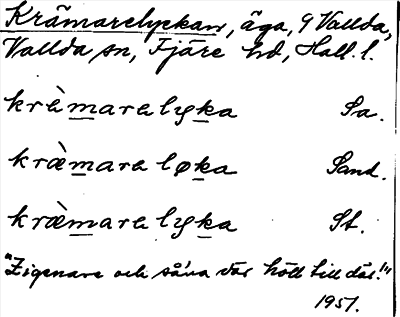 Krämarelyckan, äga, 9 Vallda,
Vallda sn, Fjäre hd, Hall. l.
krèmaralyka Sa.
kræ̀maraløka Sand.
kræ̀maralyka St.
"Zigenare och såna där höll till där!"
1951.